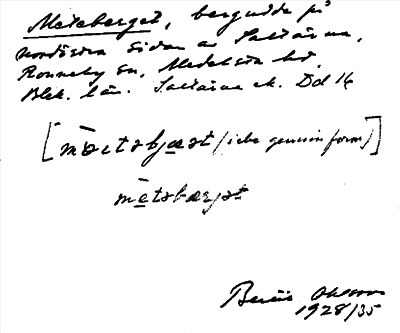 Meteberget, bergudde på
nordöstra sidan av Saltärna,
Ronneby sn, Medelsta hd,
Blek. län. Saltärna ek. Dd 16
[mæ̀tsbjæst (icke genuin form)]
mètəbærjət
Ohlsson
1928/35